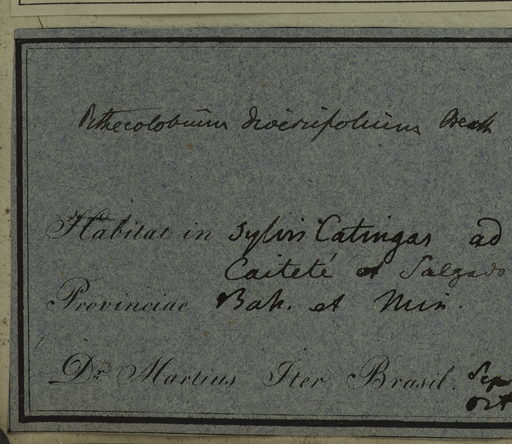 Pithecolobium diversifolium Benth
Habitat in sylvis Catingas ad
Caiteté et Salgado
Provinciae Bah. et Min.
Dr. Martius Iter Brasil. Sept
Oct